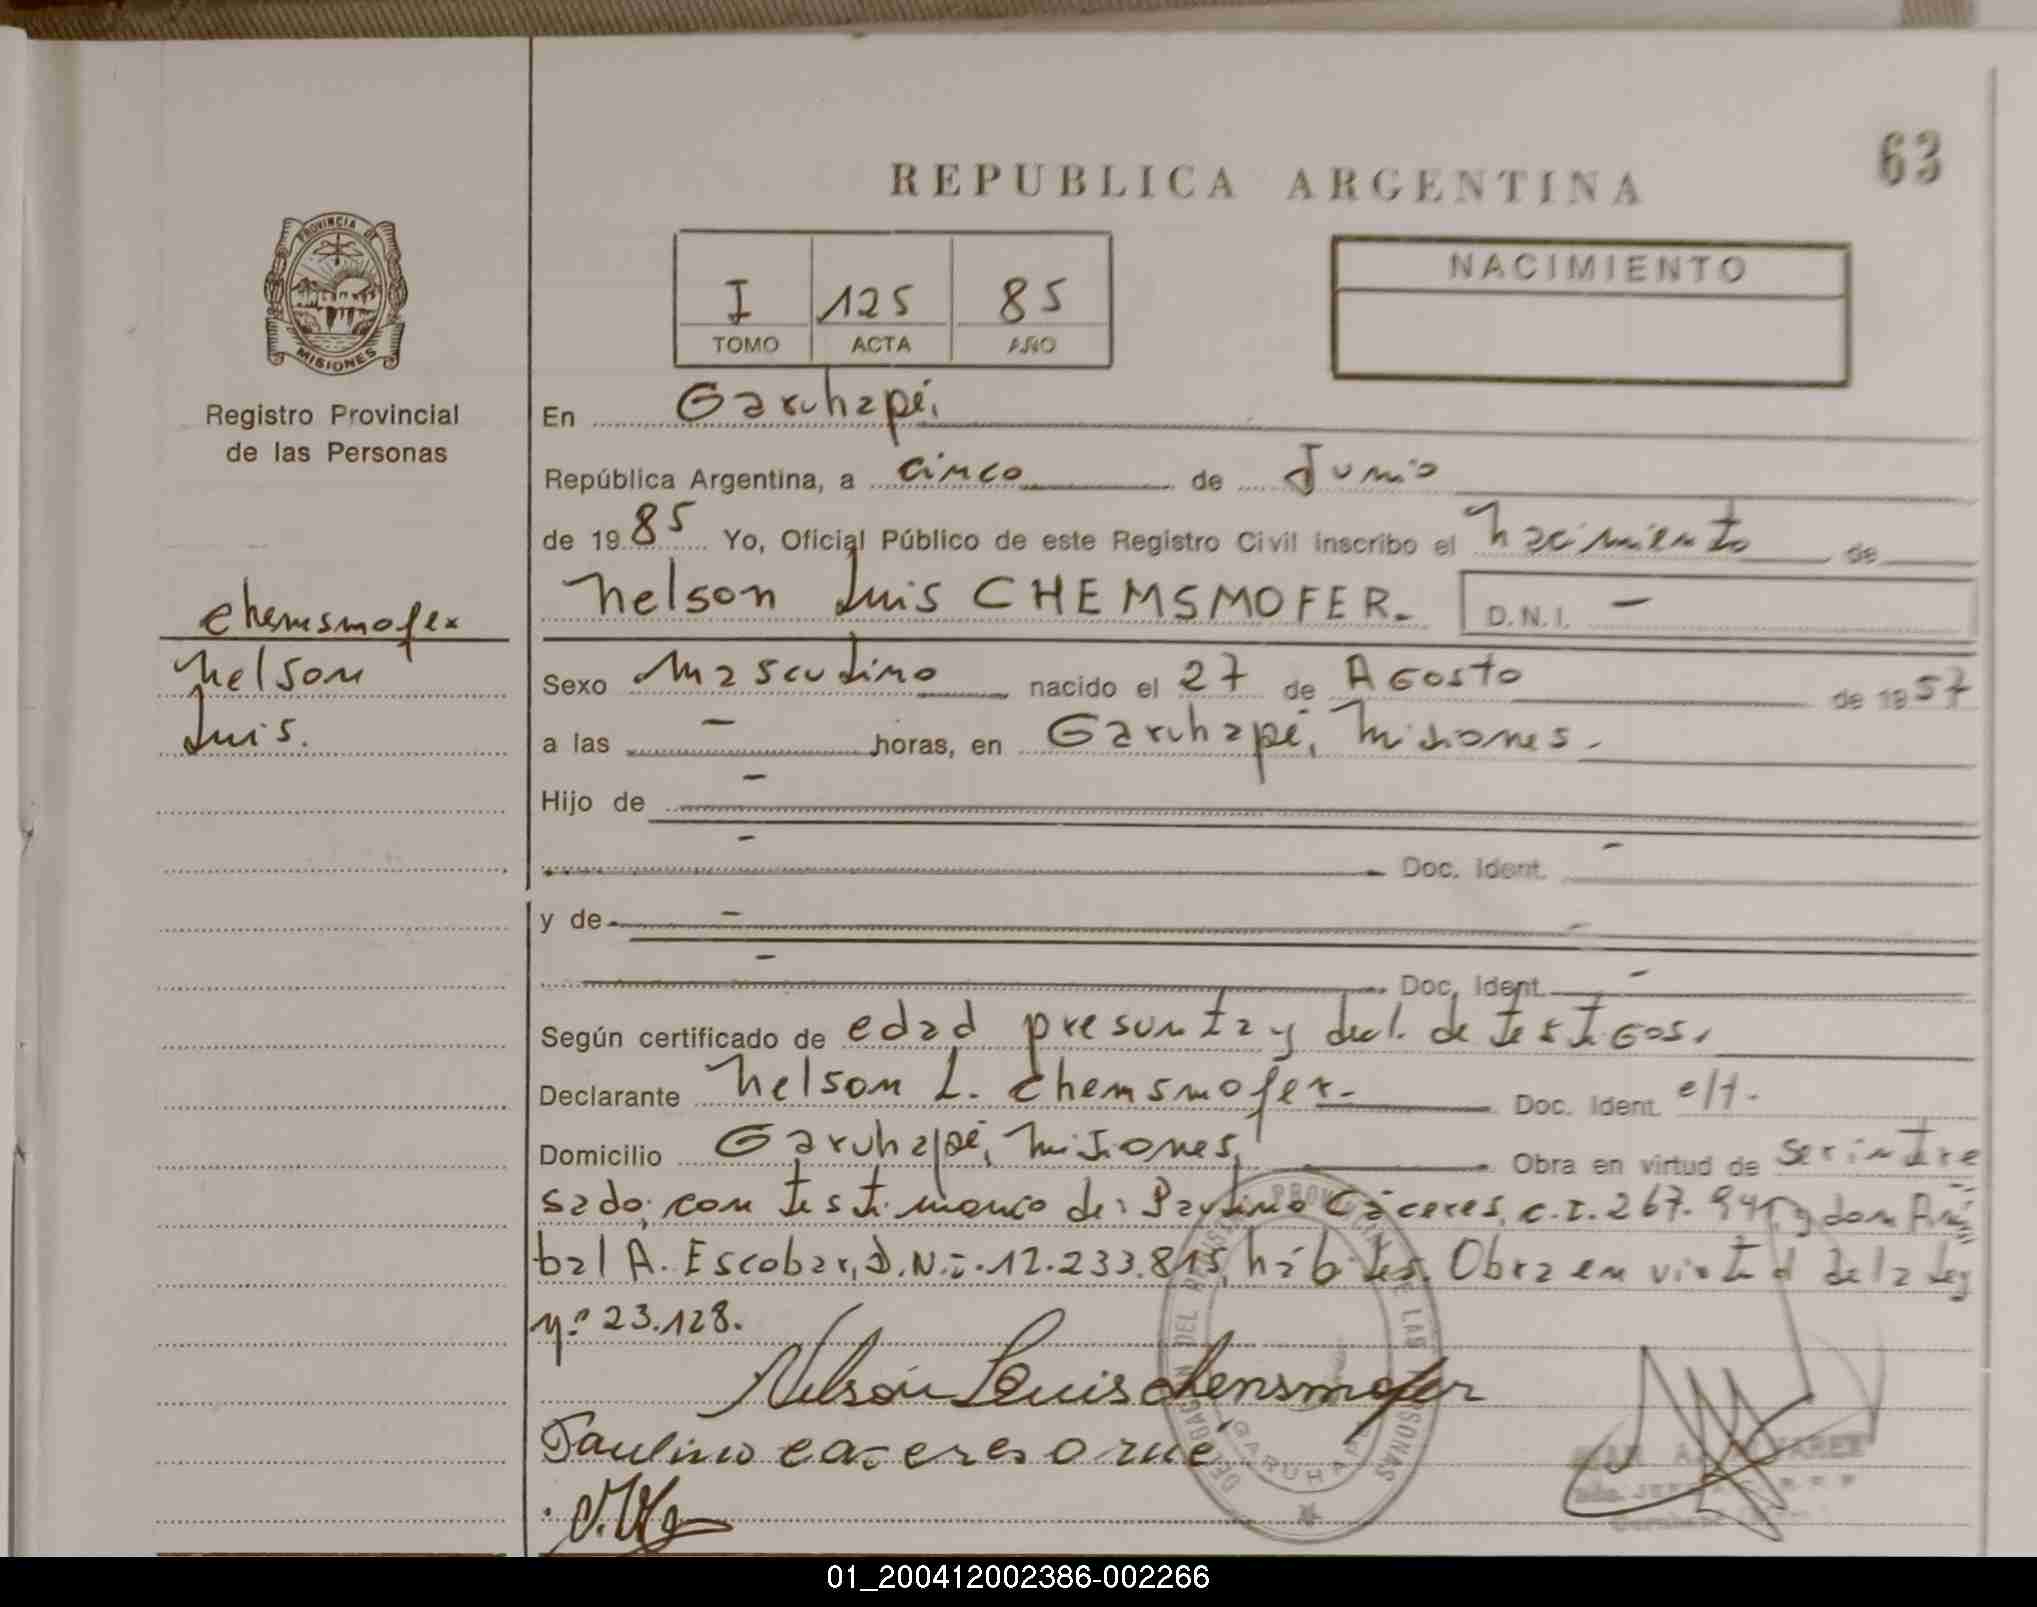 63
REPUBLICA ARGENTINA
NACIMIENTO
I 125 85
TOMO ACTA AÑO
PROVINCIA DE
MISIONES
Registro Provincial
de las Personas
Chemsmofer
Nelson
Luis.
En Garuhapé,
República Argentina, a cinco de Junio
de 1985 Yo, Oficial Público de este Registro Civil inscribo el nacimiento de
Nelson Luis CHEMSMOFER. D.N.I. –
Sexo Masculino nacido el 27 de Agosto de 1957
a las – horas, en Garuhapé, Misiones.
Hijo de –
– Doc. Ident. –
y de –
– Doc. Ident. –
Según certificado de edad presunta y decl. de testigos,
Declarante Nelson L. Chemsmofer.- Doc. Ident. e/t.
Domicilio Garuhapé, Misiones, Obra en virtud de ser intre
sado, con testimonio de: Paulino Cáceres, C.I. 267. y don Aní
bal A. Escobar, D.N.I. 12.233.815, hábiles. Obra en virtud de la Ley
nº 23.128.
Nelson Luis Chensmofer
Paulino caceres orué
DELEGACION DEL REGISTRO PROVINCIAL DE LAS PERSONAS
GARUHAPE
01_200412002386-002266